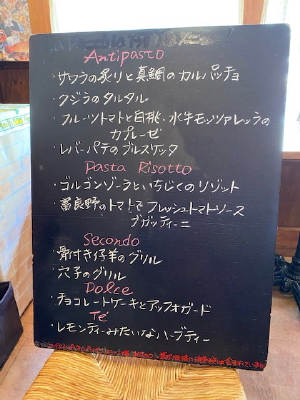 Antipasto
・サワラの炙りと真鯛のカルパッチョ
・クジラのタルタル
・フルーツトマトと白桃、水牛モッツァレッラの
カプレーゼ
・レバーパテのブルスケッタ
Pasta Risotto
・ゴルゴンゾーラといちじくのリゾット
・富良野のトマトで フレッシュトマトソース
ブガッティーニ
Secondo
・骨付き仔羊のグリル
・穴子のグリル
Dolce
・チョコレートケーキとアッフォガード
Té
・レモンティーみたいなハーブティー